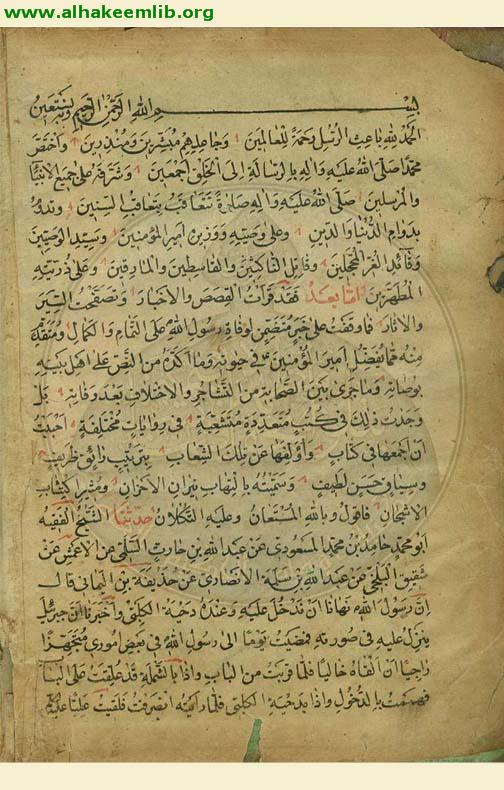 www.alhakeemlib.org
بسم الله الرحمن الرحيم وبه نستعين
الحمد لله باعث الرسل رحمة للعالمين وجاعلهم مبشرين ومنذرين واختص
محمدا صلى الله عليه واله بالرسالة إلى الخلق اجمعين وشرفه على جميع الانبياء
والمرسلين صلى الله عليه واله صلوة تتعاقب بتعاقب السنين وتدوم
بدوام الدنيا والدين وعلى وصيه ووزيره امير المؤمنين وسيد الوصيين
وقائد الغر المحجلين وقاتل الناكثين والقاسطين والمارقين وعلى ذريته
المطهرين اما بعد فقد قرأت القصص والاخبار وتصفحت السير
والاثار فما وقفت على خبر متضمن لوفاة رسول الله على التمام والكمال
منه فما يفضل امير المؤمنين في حيوته وما اكده من النص على اهل بيته
بوصاته وما جرى بين الصحابة من التشاجر والاختلاف بعد وفاته بل
وجدت ذلك في كتب متعددة متشعبة في روايات مختلفة احببت
ان اجمعها في كتاب وأولفها عن تلك الشعاب بترتيب رائق ظريف
وسياق حسن لطيف وسميته بالتهاب نيران الاحزان ومثير اكتئاب
الاشجان فاقول وبالله المستعان وعليه التكلان حدثنا الشيخ الفقيه
ابو محمد حامد بن محمد المسعودي عن عبد الله بن حارث السلمي عن الاعمش عن
شقيق البلخي عن عبد الله بن سلمة الانصاري عن حذيفة بن اليمان قال
ان رسول الله نهانا ان ندخل عليه وعنده دحية الكلبي وأخبرنا ان جبرئيل
ينزل عليه في صورته فمضيت يوما الى رسول الله في بعض اموري متهجرا
راجيا ان القاه خاليا فلما قربت من الباب واذا بالشملة قد علقت على الباب
فهممت بالدخول واذا بدحية الكلبي فلما رأيته انصرفت فلقيت عليا